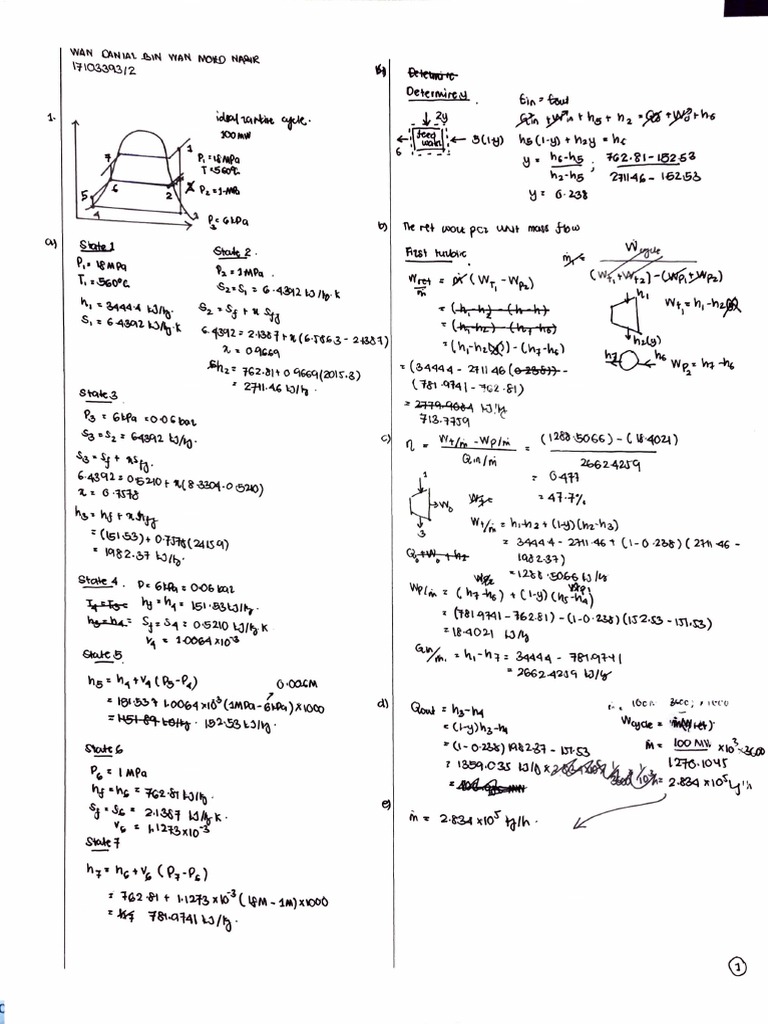 WAN DANIAL BIN WAN MOHD NASIR
17103393/2
1.
ideal rankine cycle.
100 MW
P₁ = 18 MPa
T = 560°C
P₂ = 1 MPa
P₃ = 6 kPa
1
7
6
2
5
4
3
a)
State 1
P₁ = 18 MPa
T₁ = 560°C
h₁ = 3444.4 kJ/kg
S₁ = 6.4392 kJ/kg.K
State 2
P₂ = 1 MPa
S₂ = S₁ = 6.4392 kJ/kg.K
S₂ = Sf + x Sfg
6.4392 = 2.1387 + x(6.5863 - 2.1387)
x = 0.9669
h₂ = 762.81 + 0.9669(2015.3)
= 2711.46 kJ/kg.
State 3
P₃ = 6 kPa = 0.06 bar
S₃ = S₂ = 6.4392 kJ/kg.
S₃ = Sf + x Sfg
6.4392 = 0.5210 + x(8.3304 - 0.5210)
x = 0.7578
h₃ = hf + x hfg
= (151.53) + 0.7578(2415.9)
= 1982.37 kJ/kg.
State 4 P = 6 kPa = 0.06 bar
hf = h₄ = 151.53 kJ/kg.
Sf = S₄ = 0.5210 kJ/kg.K
v₄ = 1.0064 × 10⁻³
State 5
h₅ = h₄ + v₄ (P₅ - P₄) 0.006M
= 151.53 + 1.0064 × 10⁻³ (1MPa - 6kPa) × 1000
= 151.89 kJ/kg. 152.53 kJ/kg.
State 6
P₆ = 1 MPa
hf = h₆ = 762.81 kJ/kg.
Sf = S₆ = 2.1387 kJ/kg.K
v₆ = 1.1273 × 10⁻³
State 7
h₇ = h₆ + v₆ (P₇ - P₆)
= 762.81 + 1.1273 × 10⁻³ (18M - 1M) × 1000
= 781.9741 kJ/kg.
b)
Determine
Determine y
2y
6
feed
water
5(1-y)
Ein = Eout
Qin + Win + h₅ + h₂ = Qo + Wo + h₆
h₅(1-y) + h₂y = h₆
y = (h₆ - h₅)/(h₂ - h₅) ; (762.81 - 152.53)/(2711.46 - 152.53)
y = 0.238
b) The net work per unit mass flow
First turbine
ṁ₁ = Ẇcycle/((Wt₁ + Wt₂) - (Wp₁ + Wp₂))
Wnet/ṁ = ṁ (WT₁ - WP₂)
= (h₁ - h₂) - (h - h)
= (h₁ - h₂) - (h₇ - h₆)
= (h₁ - h₂) - (h₇ - h₆)
= (3444.4 - 2711.46 (0.238)) -
(781.9741 - 762.81)
= 2779.9084 kJ/kg
713.7759
h₁
Wt₁ = h₁ - h₂
h₂(y)
h₇
h₆
Wp₂ = h₇ - h₆
c)
η = (Wt/ṁ - Wp/ṁ)/(Qin/ṁ) = ((1288.5066) - (18.4021))/2662.4259
= 0.477
= 47.7%
1
W₀
3
Wt/ṁ = h₁ - h₂ + (1-y)(h₂ - h₃)
= 3444.4 - 2711.46 + (1 - 0.238)(2711.46 -
1982.37)
= 1288.5066 kJ/kg
Q₀ + W₀ + h₂
Wp₂ Wp₁
Wp/ṁ = (h₇ - h₆) + (1-y)(h₅ - h₄)
= (781.9741 - 762.81) - (1 - 0.238)(152.53 - 151.53)
= 18.4021 kJ/kg
Qin/ṁ = h₁ - h₇ = 3444.4 - 781.9741
= 2662.4259 kJ/kg
d)
Qout = h₃ - h₄
= (1-y)h₃ - h₄
= (1 - 0.238) 1982.37 - 151.53
= 1359.035 kJ/kg
Wcycle = ṁ(Wnet)
ṁ = 100 MW/1270.1045 × 10³ × 3600
= 2.834 × 10⁵ kg/h
e)
ṁ = 2.834 × 10⁵ kg/h.
1